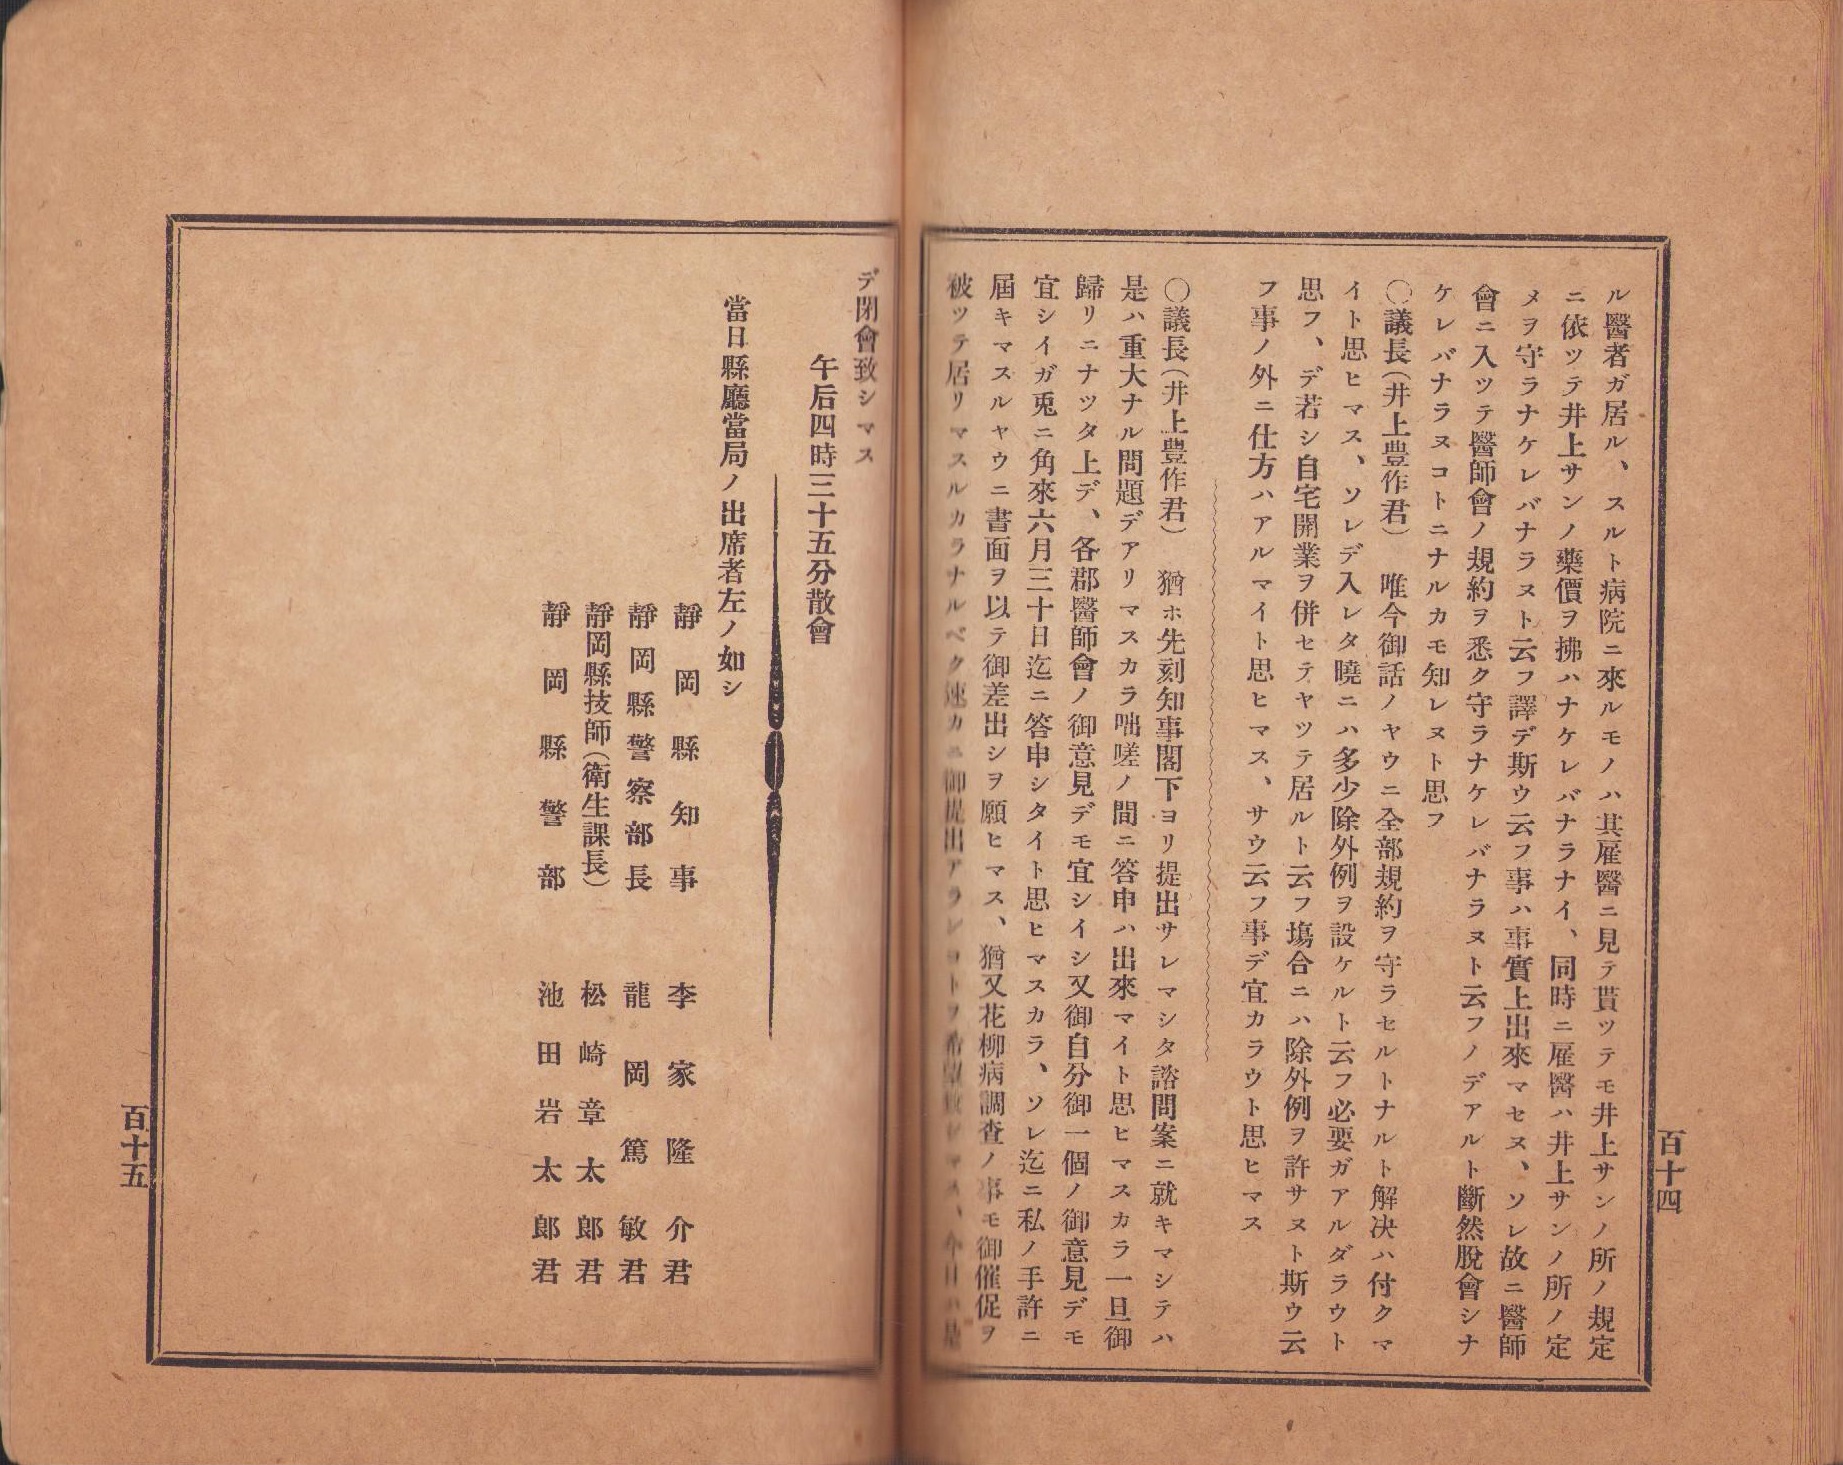 百十四
ル醫者ガ居ル、スルト病院ニ來ルモノハ其雇醫ニ見テ貰ツテモ井上サンノ所ノ規定
ニ依ツテ井上サンノ藥價ヲ拂ハナケレバナラナイ、同時ニ雇醫ハ井上サンノ所ノ定
メヲ守ラナケレバナラヌト云フ譯デ斯ウ云フ事ハ事實上出來マセヌ、ソレ故ニ醫師
會ニ入ツテ醫師會ノ規約ヲ悉ク守ラナケレバナラヌト云フノデアルト斷然脫會シナ
ケレバナラヌコトニナルカモ知レヌト思フ
〇議長(井上豊作君) 唯今御話ノヤウニ全部規約ヲ守ラセルトナルト解決ハ付クマ
イト思ヒマス、ソレデ入レタ曉ニハ多少除外例ヲ設ケルト云フ必要ガアルダラウト
思フ、デ若シ自宅開業ヲ併セテヤツテ居ルト云フ塲合ニハ除外例ヲ許サヌト斯ウ云
フ事ノ外ニ仕方ハアルマイト思ヒマス、サウ云フ事デ宜カラウト思ヒマス
〇議長(井上豊作君) 猶ホ先刻知事閣下ヨリ提出サレマシタ諮問案ニ就キマシテハ
是ハ重大ナル問題デアリマスカラ咄嗟ノ間ニ答申ハ出來マイト思ヒマスカラ一旦御
歸リニナツタ上デ、各郡醫師會ノ御意見デモ宜シイシ又御自分御一個ノ御意見デモ
宜シイガ兎ニ角來六月三十日迄ニ答申シタイト思ヒマスカラ、ソレ迄ニ私ノ手許ニ
屆キマスルヤウニ書面ヲ以テ御差出シヲ願ヒマス、猶又花柳病調査ノ事モ御催促ヲ
被ツテ居リマスルカラナルベク速カニ御提出アランコトヲ希望致シマス、今日ハ是
デ閉會致シマス
午后四時三十五分散會
當日縣廳當局ノ出席者左ノ如シ
靜岡縣知事 李家隆介君
靜岡縣警察部長 龍岡篤敏君
靜岡縣技師(衛生課長) 松崎章太郎君
靜岡縣警部 池田岩太郎君
百十五